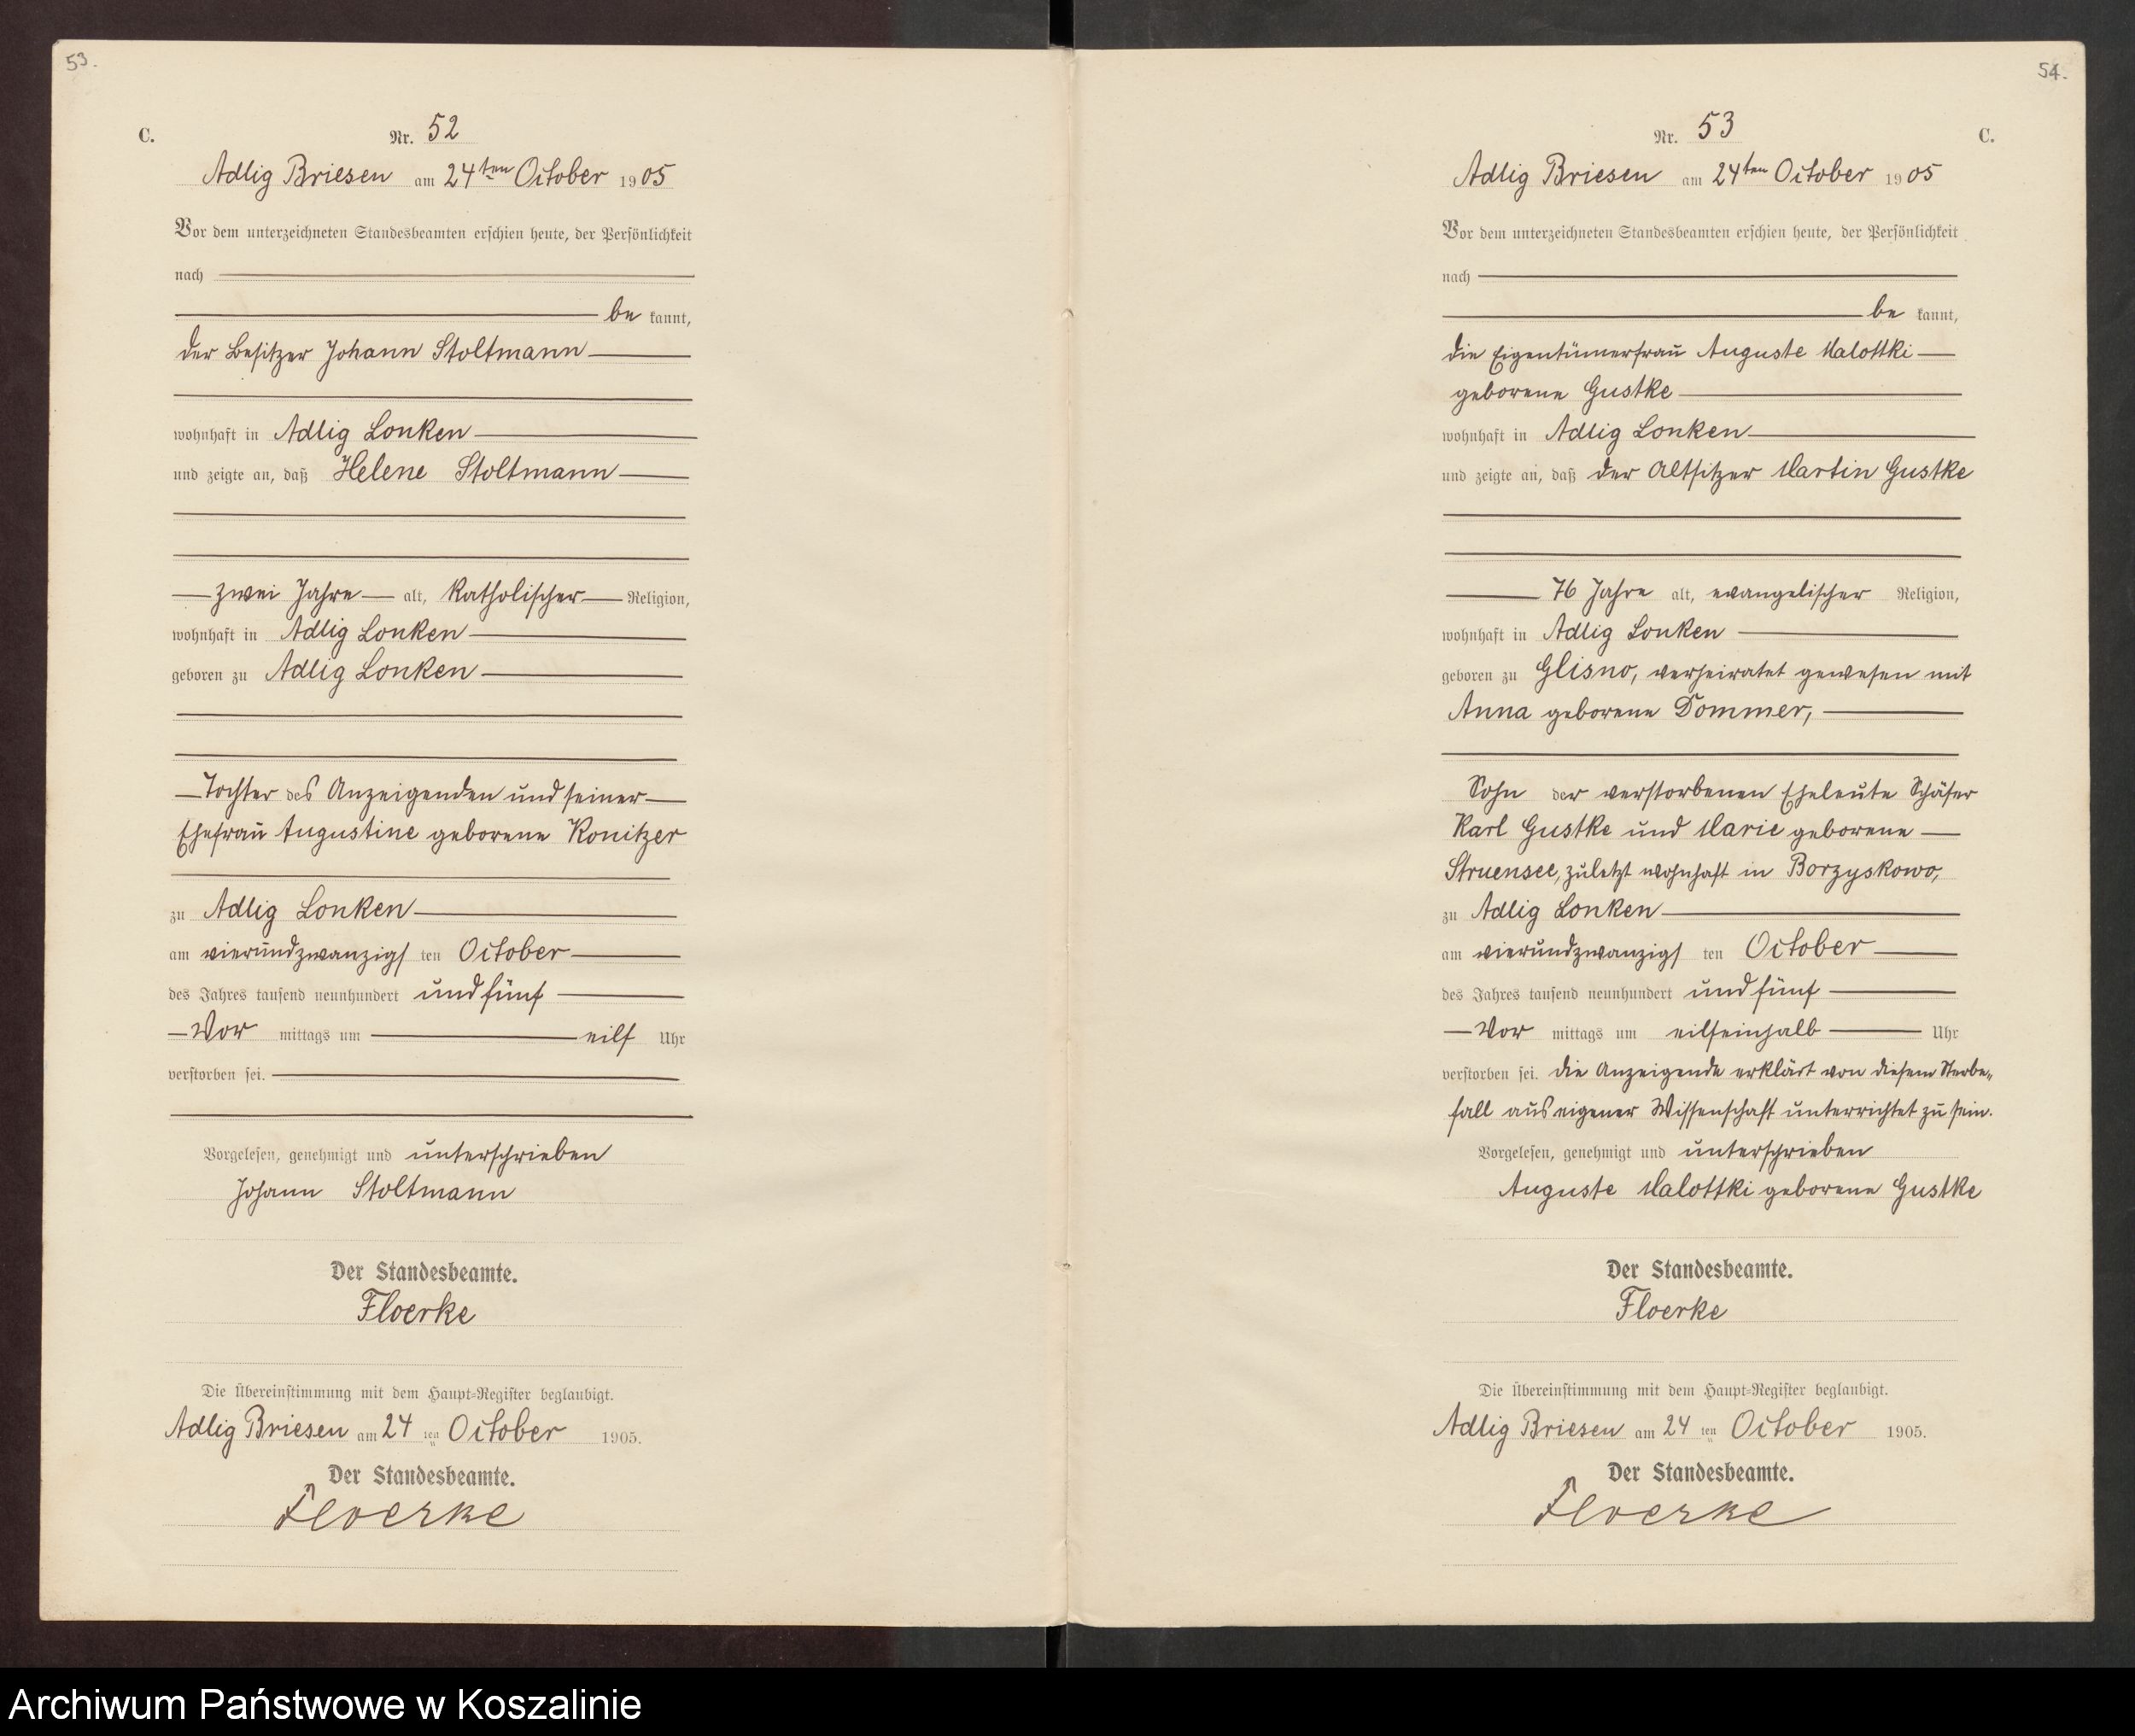 53.
C.
Nr. 52
Adlig Briesen am 24ten October 1905
Vor dem unterzeichneten Standesbeamten erschien heute, der Persönlichkeit
nach
be kannt,
der Besitzer Johann Stoltmann
wohnhaft in Adlig Lonken
und zeigte an, daß Helene Stoltmann
zwei Jahre alt, katholischer Religion,
wohnhaft in Adlig Lonken
geboren zu Adlig Lonken
Tochter des Anzeigenden und seiner
Ehefrau Augustine geborene Konitzer
zu Adlig Lonken
am vierundzwanzigs ten October
des Jahres tausend neunhundert und fünf
Vor mittags um eilf Uhr
verstorben sei.
Vorgelesen, genehmigt und unterschrieben
Johann Stoltmann
Der Standesbeamte.
Floerke
Die Übereinstimmung mit dem Haupt-Register beglaubigt.
Adlig Briesen am 24 ten October 1905.
Der Standesbeamte.
Floerke
54.
Nr. 53
C.
Adlig Briesen am 24ten October 1905
Vor dem unterzeichneten Standesbeamten erschien heute, der Persönlichkeit
nach
be kannt,
die Eigentümerfrau Auguste Malottki
geborene Gustke
wohnhaft in Adlig Lonken
und zeigte an, daß der Altsitzer Martin Gustke
76 Jahre alt, evangelischer Religion,
wohnhaft in Adlig Lonken
geboren zu Glisno, verheiratet gewesen mit
Anna geborene Dommer,
Sohn der verstorbenen Eheleute Schäfer
Karl Gustke und Marie geborene
Struensee, zuletzt wohnhaft in Borzyskowo,
zu Adlig Lonken
am vierundzwanzigs ten October
des Jahres tausend neunhundert und fünf
Vor mittags um eilfeinhalb Uhr
verstorben sei. Die Anzeigende erklärt von diesem Sterbe-
fall aus eigener Wissenschaft unterrichtet zu sein.
Vorgelesen, genehmigt und unterschrieben
Auguste Malottki geborene Gustke
Der Standesbeamte.
Floerke
Die Übereinstimmung mit dem Haupt-Register beglaubigt.
Adlig Briesen am 24 ten October 1905.
Der Standesbeamte.
Floerke
Archiwum Państwowe w Koszalinie